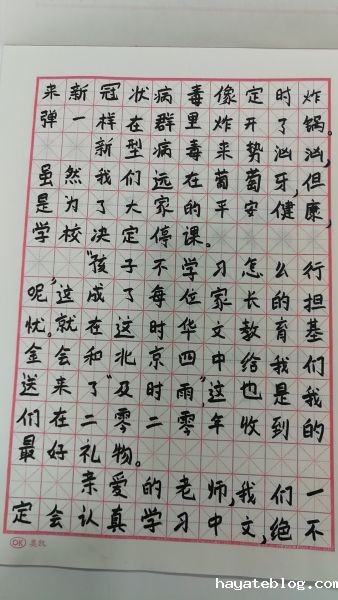 来新冠状病毒像定时炸
弹一样在群里炸开了锅。
新型病毒来势汹汹,
虽然我们远在葡萄牙,但
是为了大家的平安健康,
学校决定停课。
“孩子不学习怎么行
呢”,这成了每位家长的担
忧。就在这时华文教育基
金会和北京四中给我们
送来了“及时雨”,这也是我
们在二零二零年收到的
最好礼物。
亲爱的老师,我们一
定会认真学习中文,绝不
OK 美凯
hayateblog.com